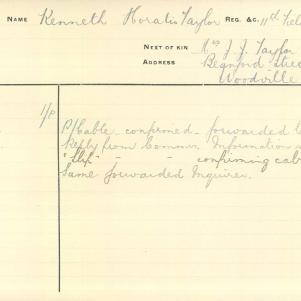 NAME Kenneth Horatio Taylor REG. &C. 11th Fiel
NEXT OF KIN Mrs J. J. Taylor
ADDRESS Street
Woodville
1/P P/Cable confirmed forwarded t
Reply from Commn. Information
"slip" - - - confirming cab
Same forwarded Inquirer.